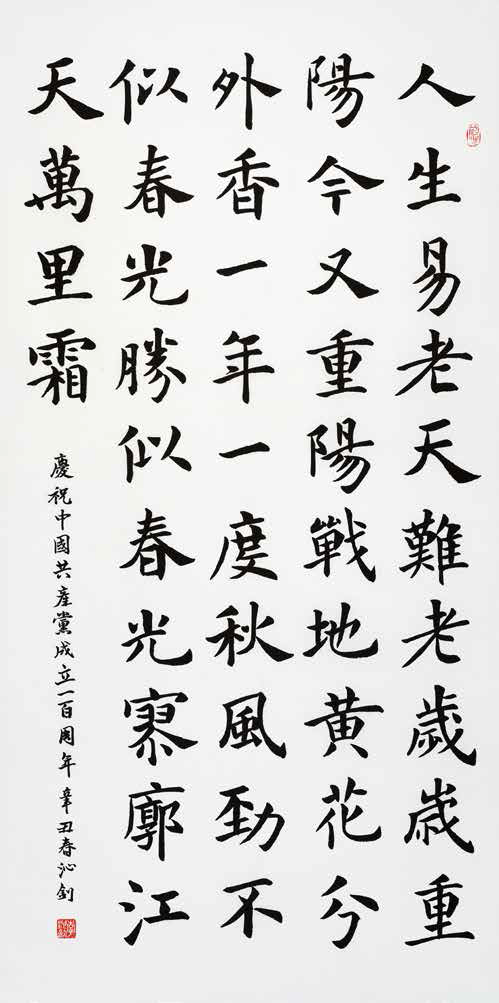 人生易老天難老歲歲重
陽今又重陽戰地黄花分
外香一年一度秋風勁不
似春光勝似春光寥廓江
天萬里霜
慶祝中國共產黨成立一百周年 辛丑春沁釗